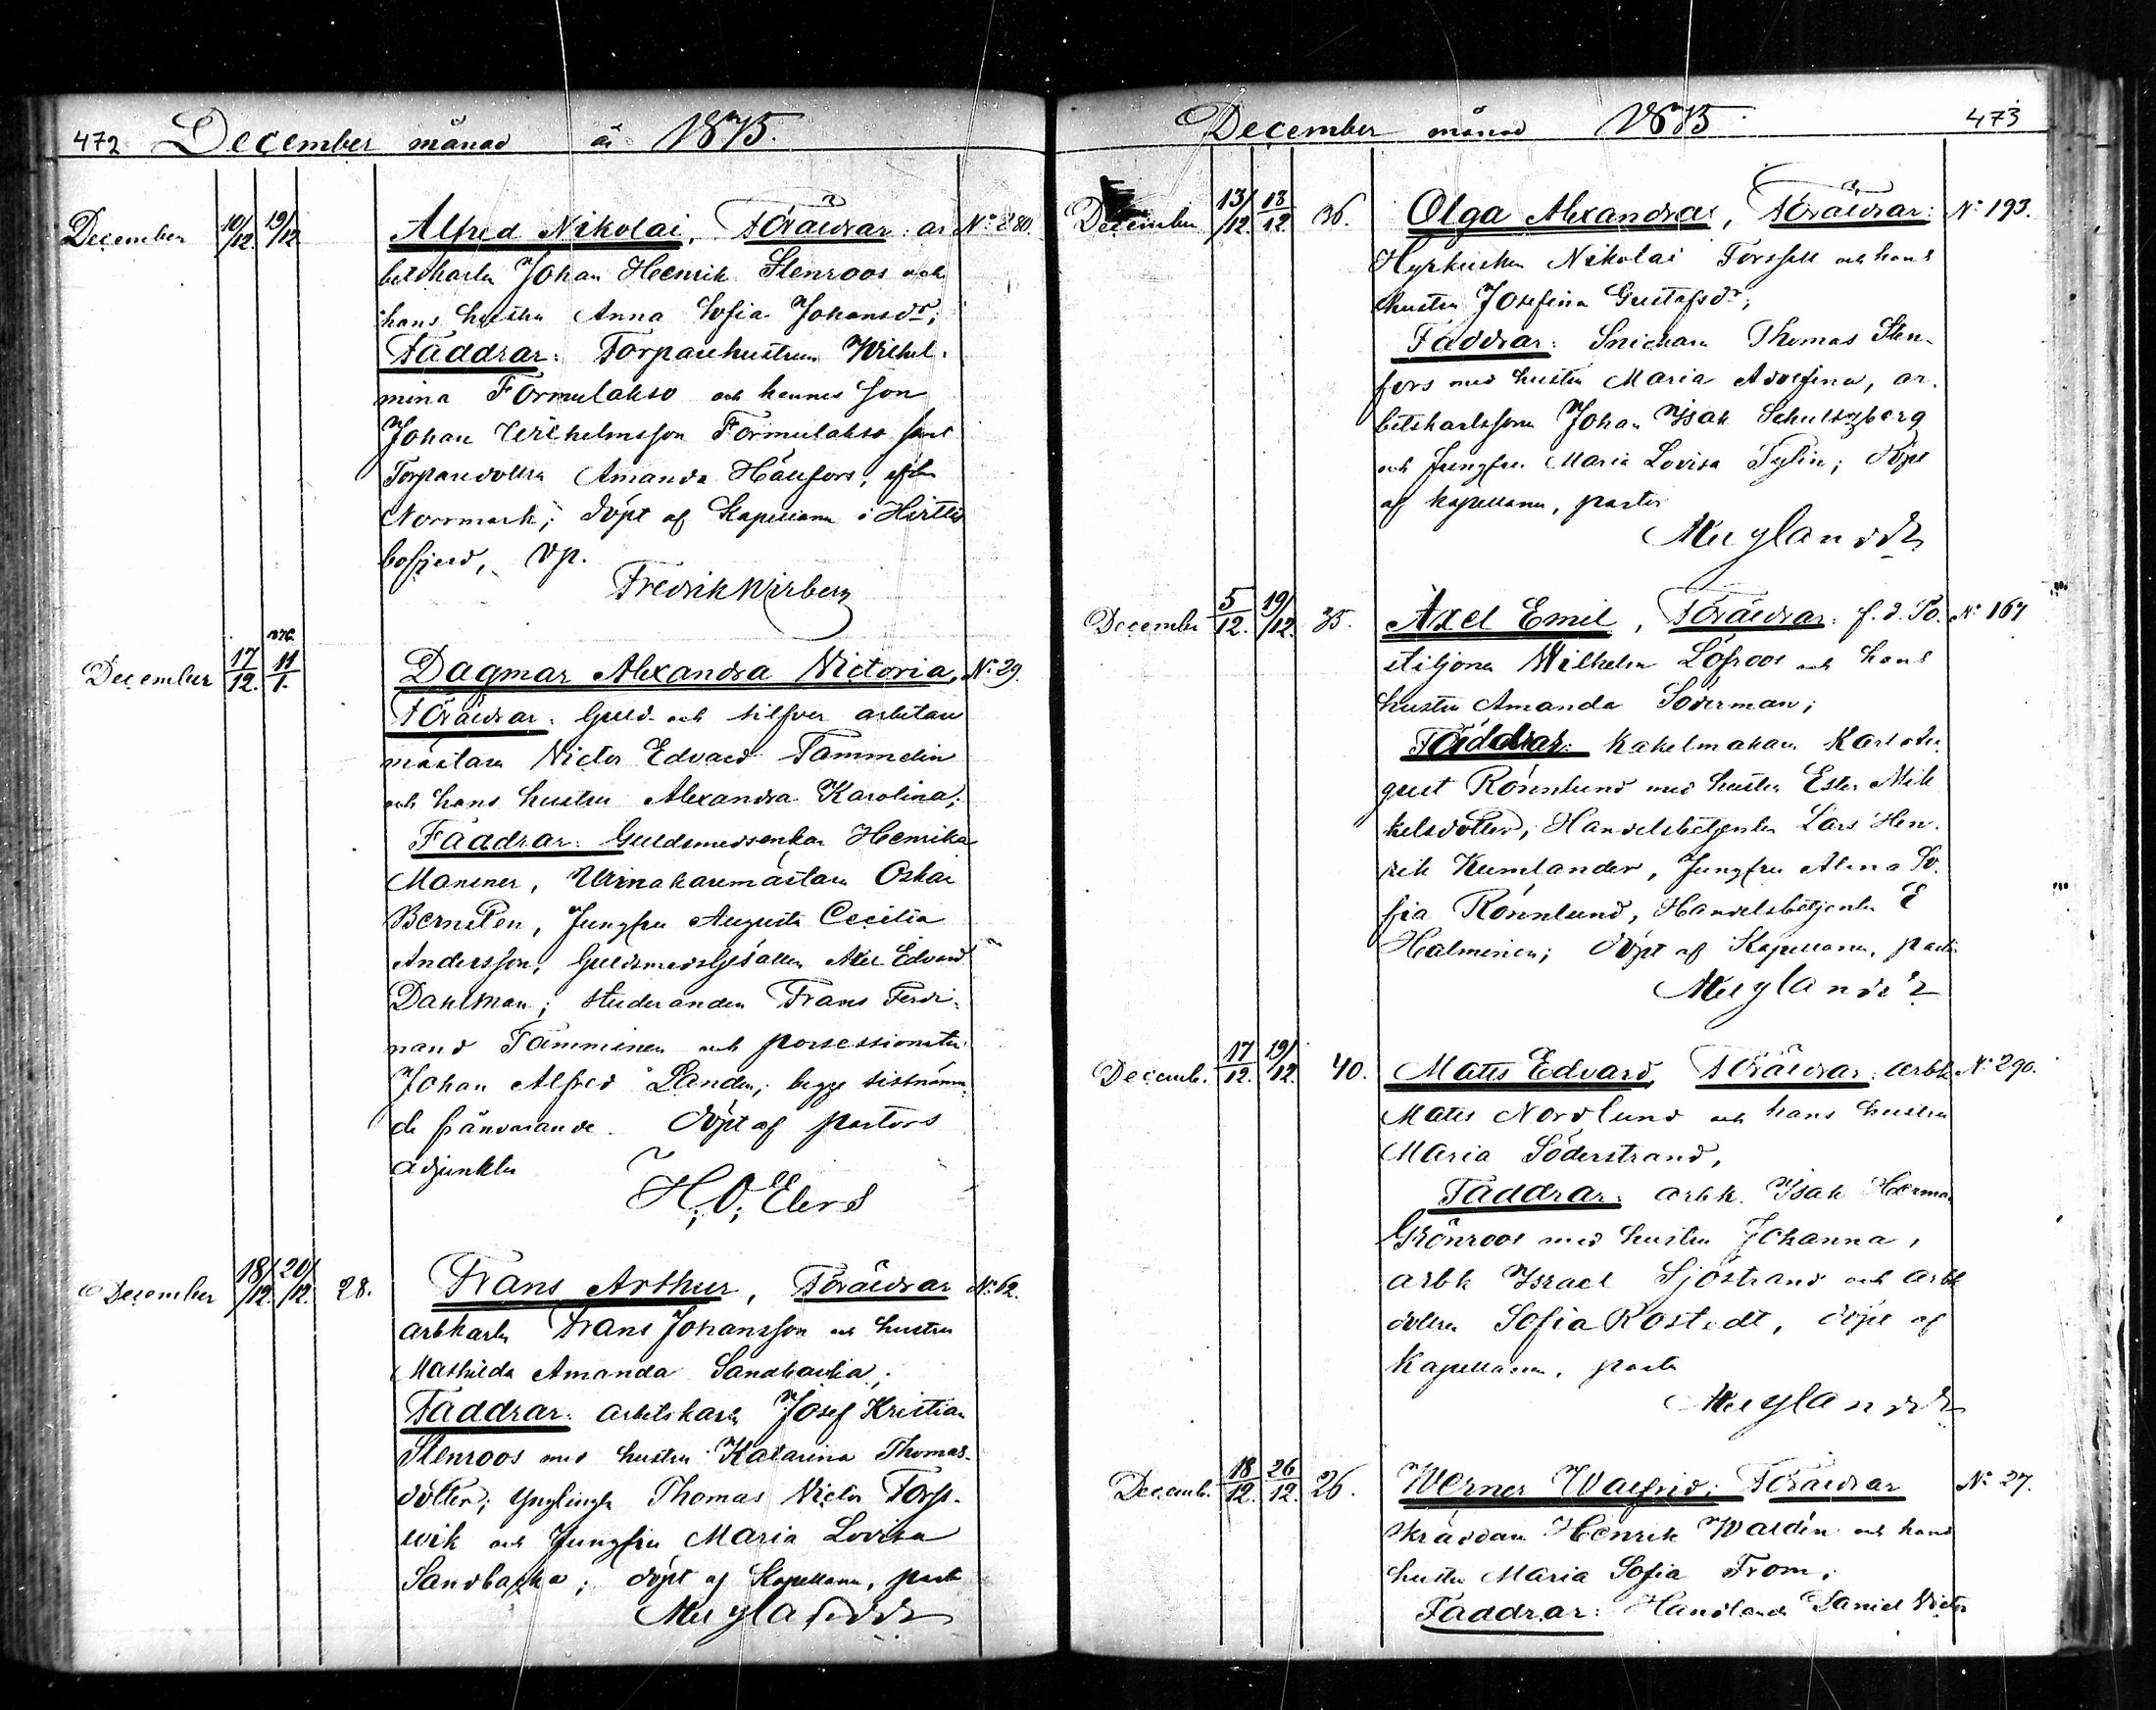 472 December månad år 1875.
December 10/12. 19/12 Alfred Nikolai, Föräldrar: ar No 280.
betskarln Johan Henrik Stenroos och
hans hustru Anna Sofia Johansdr;
Faddrar: Torparehustrun Wilhel-
mina Formulahso och hennes son
Johan Wilhelmsson Formulahso samt
Torparedottren Amanda
Norrmark; döpt af Kapellanen i Hvittis
bofjerd, vp.
Fredrik Wirberg
1876
December 17/12. 11/1. Dagmar Alexandra Victoria, No 29.
Föräldrar: Guld- och silfver arbetare
mästaren Victor Edvard Tammelin
och hans hustru Alexandra Karolina;
Faddrar: Guldsmedsenkan Henrika
Monsner, Urmakaremästaren Oskar
Jungfru Augusta Cecilia
Andersson, Guldsmedsgesällen Axel Edvard
Dahlman; studeranden Frans Ferdi-
nand Tamminen och possessionaten
Johan Alfred Landen; begge sistnämn-
de frånvarande. Döpt af pastors
adjunkten
H. O. Elers
December 18/12. 20/12. 28. Frans Arthur, Föräldrar No 62.
arbkarln Frans Johansson och hustru
Mathilda Amanda Sandbacka;
Faddrar: arbetskarln Josef Kristian
Stenroos med hustru Katarina Thomas-
dotter; Ynglingen Thomas Victor Forss-
wik och Jungfru Maria Lovisa
Sandbacka; döpt af Kapellanen, pastor
Muylandr
December månad 1875 473
December 13/12. 18/12. 36. Olga Alexandra, Föräldrar: No 193.
Hyrkusken Nikolai Forssell och hans
hustru Josefina Gustafsdr;
Faddrar: Snickaren Thomas Sten-
fors med hustru Maria Adolfina, ar-
betskarlssonen Johan Isak Schultzberg
och Jungfru Maria Lovisa Tylin; döpt
af kapellanen, pastor
Muylandr
December 5/12. 19/12. 35. Axel Emil, Föräldrar: f. d. Po- No 167
stiljonen Wilhelm Löfroos och hans
hustru Amanda Söderman;
Faddrar: Kakelmakaren Karl Au-
gust Rönnlund med hustru Ester Mik
kelsdotter, Handelsbetjenten Lars Hen-
rik Kumlander, Jungfru Alma So-
fia Rönnlund, Handelsbetjenten E
Halminen; Döpt af Kapellanen, pastor
Muylandr
Decemb. 17/12. 19/12. 40. Matts Edvard, Föräldrar: arbk No 290.
Matts Nordlund och hans hustru
Maria Söderstrand,
Faddrar: arbk. Isak Herman
Grönroos med hustru Johanna,
arbk Israel Sjöstrand och arbk
dottren Sofia Rostedt, döpt af
Kapellanen, pastor
Muylandr
Decemb. 18/12. 26/12. 26. Werner Walfrid; Föräldrar No 27.
skräddaren Henrik Waldén och hans
hustru Maria Sofia From;
Faddrar: Handlanden Daniel Victor